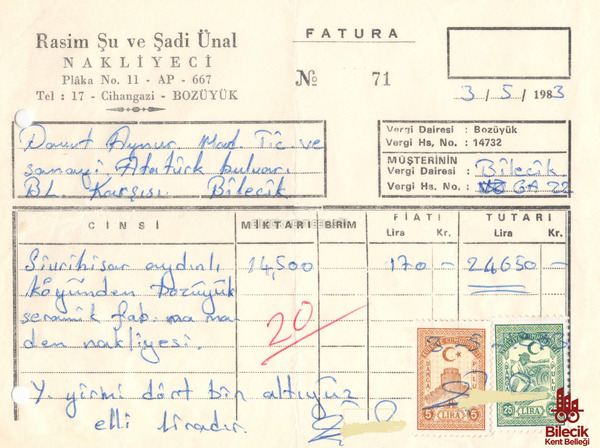 Rasim Şu ve Şadi Ünal
NAKLİYECİ
Plâka No. 11 - AP - 667
Tel : 17 - Cihangazi - BOZÜYÜK
FATURA
No 71
3 / 5 / 1983
Davut Aynur Mad. Tic ve
sanayi. Atatürk bulvarı
BL. Karşısı Bilecik
Vergi Dairesi : Bozüyük
Vergi Hs, No. : 14732
MÜŞTERİNİN
Vergi Dairesi : Bilecik
Vergi Hs. No. : GA 22
CİNSİ MİKTARI BİRİM FİATI TUTARI
Lira Kr. Lira Kr.
Sivrihisar aydınlı 14,500 170 - 24650 -
köyünden Bozüyük
seramik fab. ma ma
den nakliyesi.
20
Y. yirmi dört bin altıyüz
elli liradır.
3 5
DAMGA PULU
5 LİRA 5
DAMGA PULU
25 LİRA
Bilecik
Kent Belleği